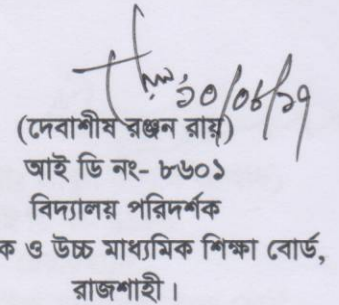 (দেবাশীষ রঞ্জন রায়)
আই ডি নং- ৮৬০১
বিদ্যালয় পরিদর্শক
ক ও উচ্চ মাধ্যমিক শিক্ষা বোর্ড,
রাজশাহী।